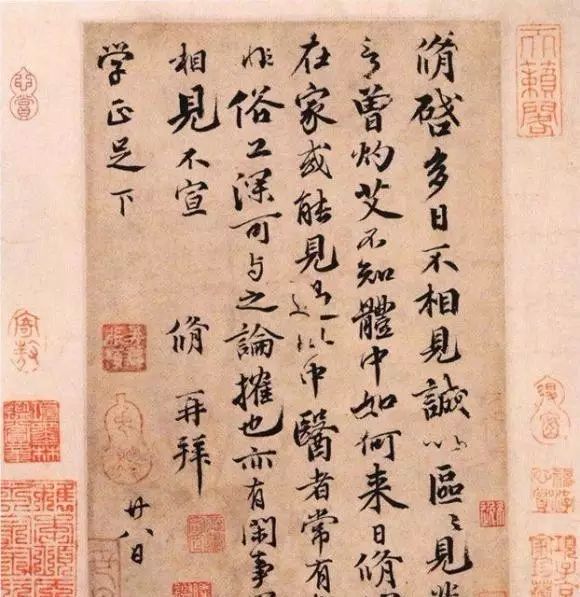 脩啓多日不相見誠以區〻見
言曾灼艾不知體中如何来日脩
在家或能見過此中醫者常有
非俗工深可与之論搉也亦有閑事
相見不宣 脩再拜
学正足下 廿八日
天籟閣